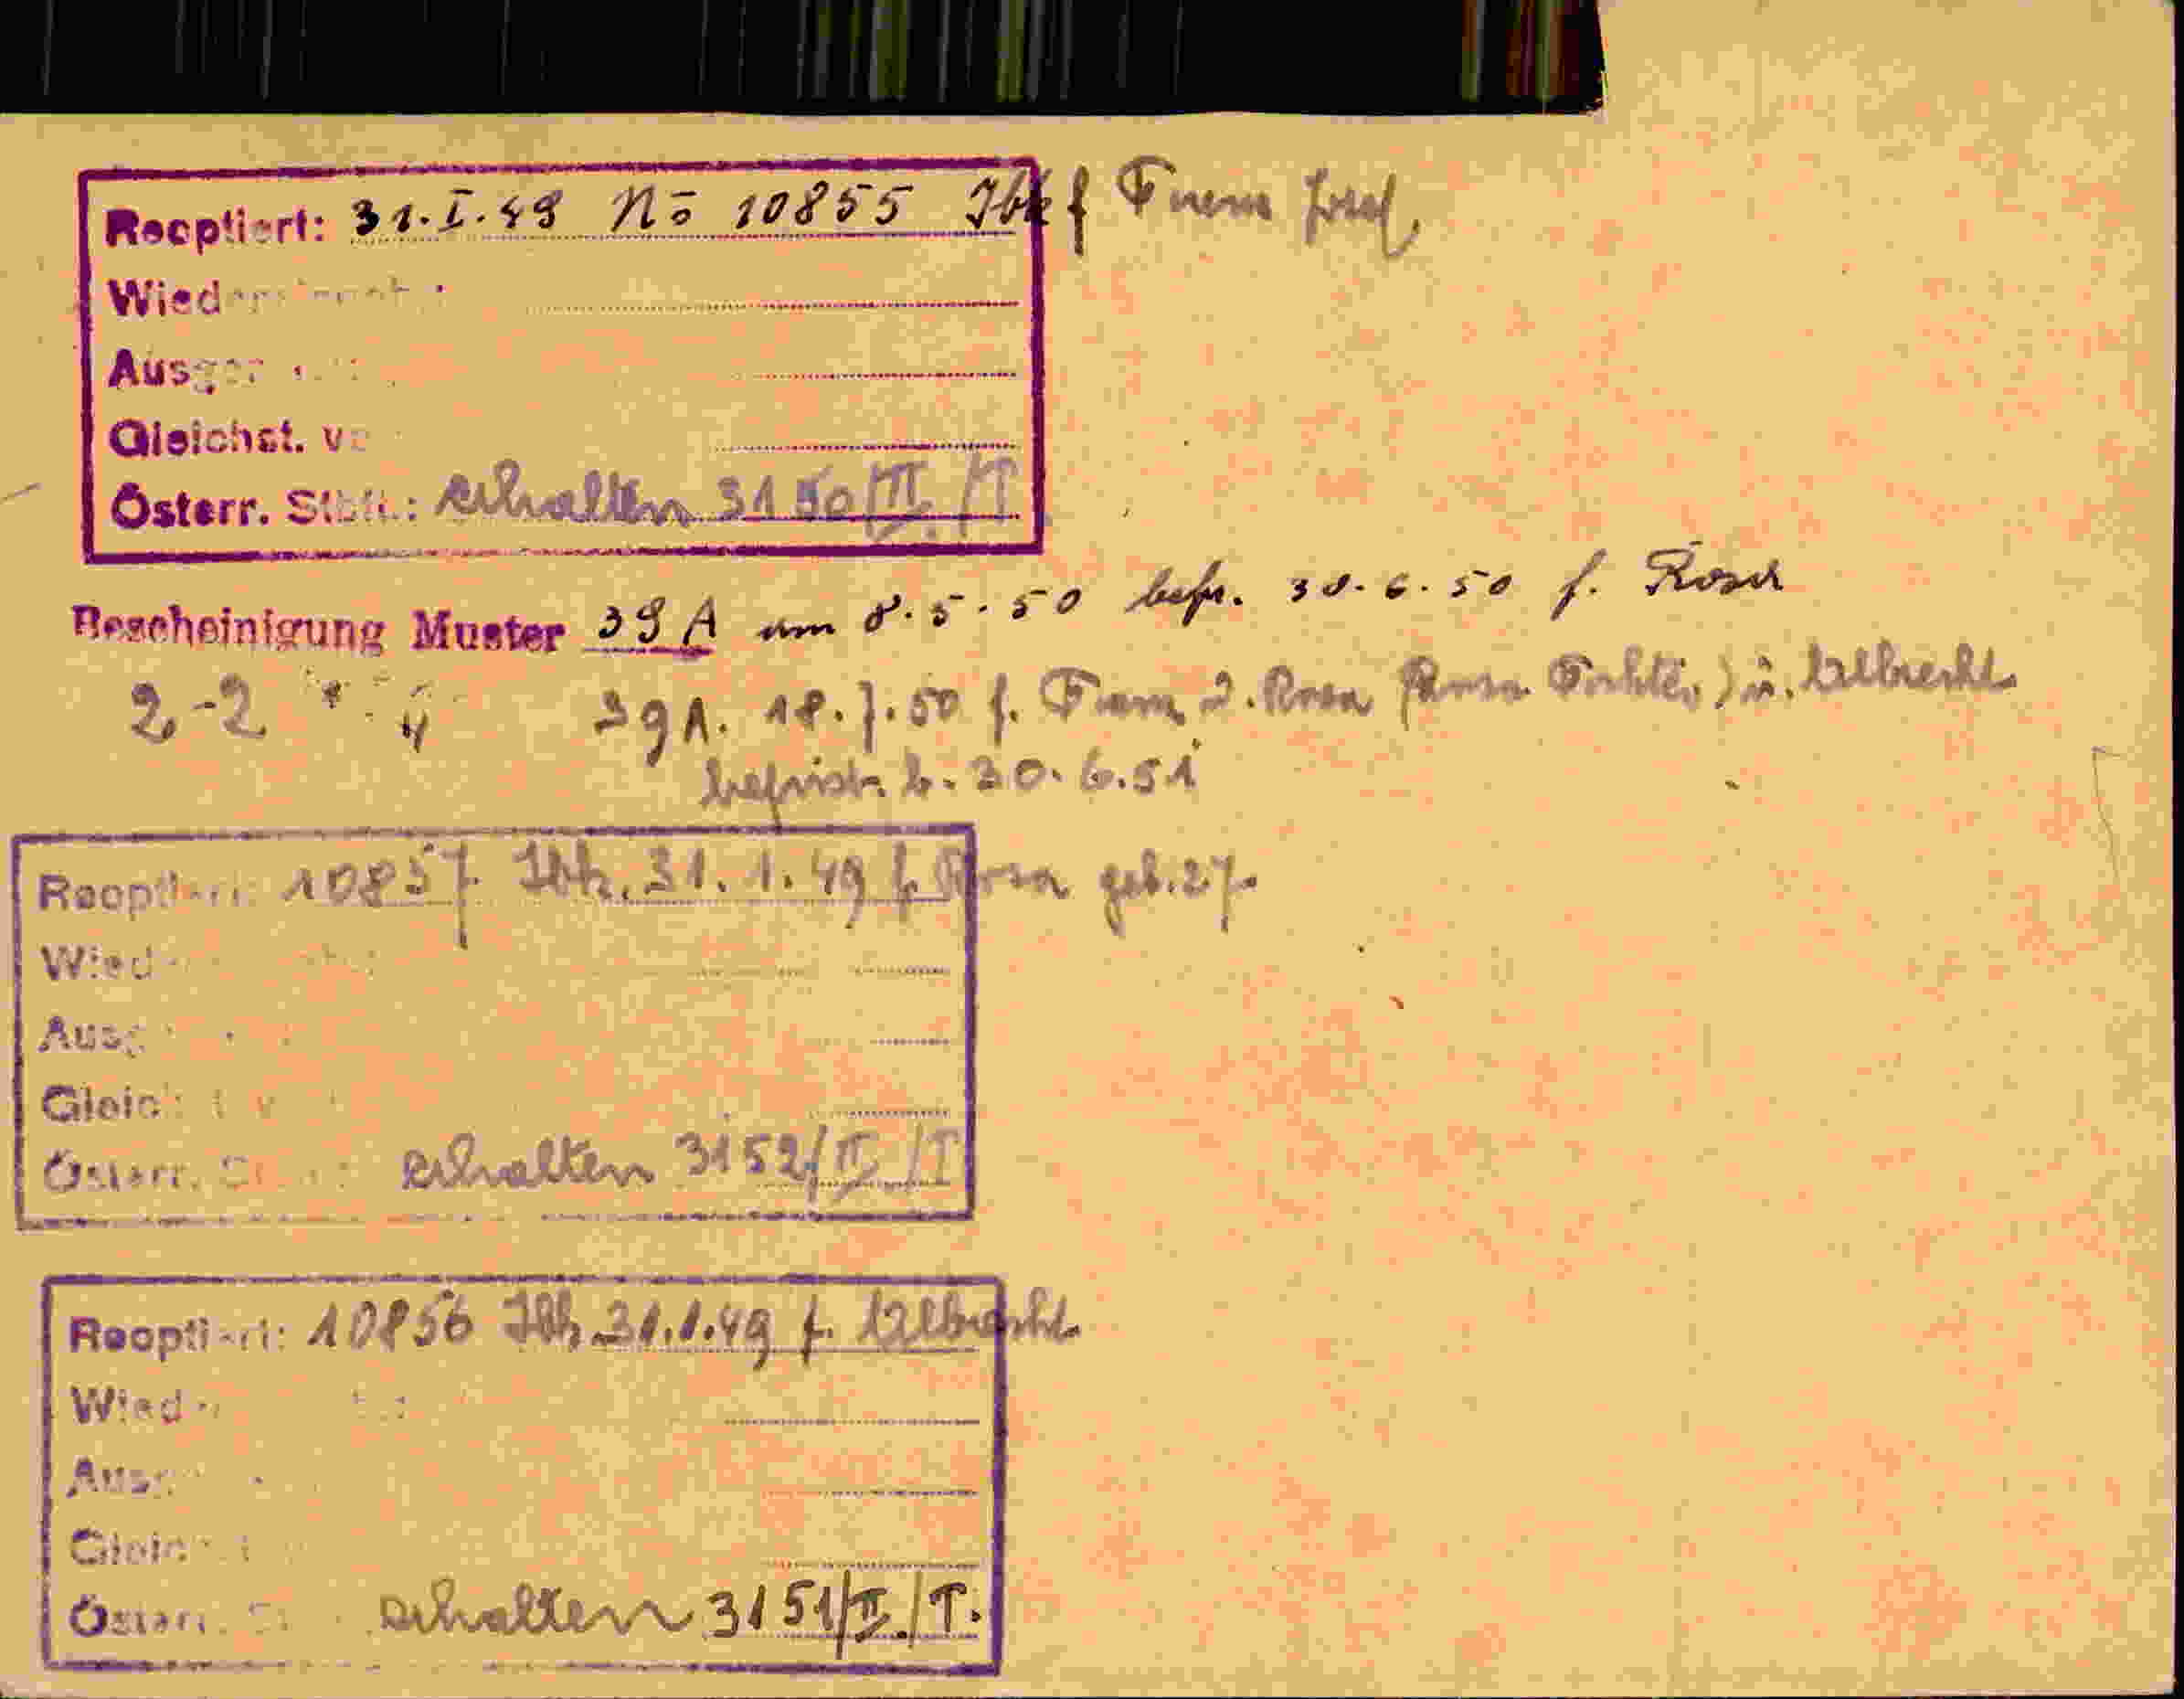 Reoptiert: 31.I.49 No 10855 Ibk f Franz Josef
Wied
Ausge
Gleichst. vo
Österr. Stbft.: erhalten 3150/II./T
Bescheinigung Muster 39 A am 8.5.50 befr. 30.6.50 f. Rosa
2-2 4 39A. 18.7.50 f. Franz J. Rosa (Rosa Tochter) u. Albrecht
befrist. b. 30.6.51
Reoptiert: 10857 Ibk. 31.1.49 f. Rosa geb. 27.
Wied
Ausg
Gleic
Österr. erhalten 3152/II./T
Reoptiert: 10856 Ibk 31.1.49 f. Albrecht
Wied
Ausg
Gleic
Österr. erhalten 3151/II./T.